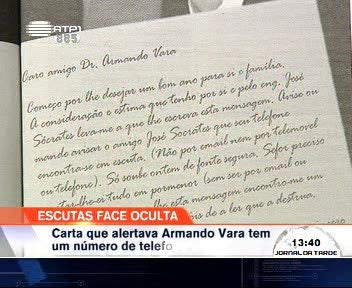 RTP1
Caro amigo Dr. Armando Vara
Começo por lhe desejar um bom ano para si e família.
A consideração e estima que tenho por si e pelo eng. José
Sócrates leva-me a que lhe escreva esta mensagem. Avise ou
mande avisar o amigo José Socrates que seu telefone
encontra-se em escuta. (Não por email nem por telemovel
ou telefone). Só soube ontem de fonte segura. Sefor preciso
tudo em pormenor (sem ser por email ou
esta mensagem encontro-me um
de a ler que a destrua.
ESCUTAS FACE OCULTA
Carta que alertava Armando Vara tem
um número de telefo
13:40
JORNAL DA TARDE